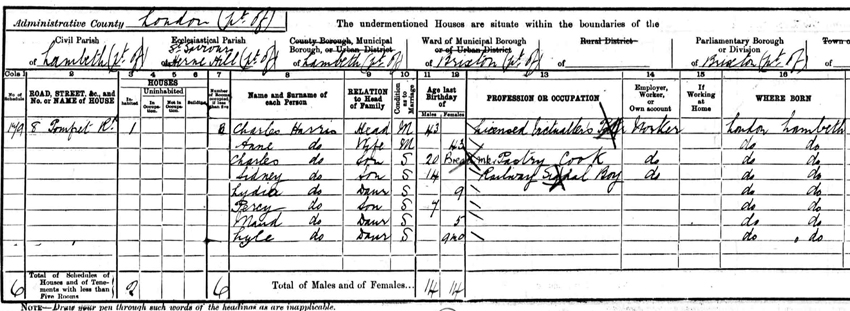 Administrative County London (pt. of) The undermentioned Houses are situate within the boundaries of the
Civil Parish Ecclesiastical Parish County Borough, Municipal Borough, or Urban District Ward of Municipal Borough or of Urban District Rural District Parliamentary Borough or Division Town o
of Lambeth (pt. of) of St Saviour Herne Hill (pt of) of Lambeth (pt. of) of Brixton (pt. of) of Brixton (pt. of)
Cols 1 2 3 4 5 6 7 8 9 10 11 12 13 14 15 16
No. of Schedule ROAD, STREET, &c., and No. or NAME of HOUSE HOUSES Inhabited Uninhabited In Occupation Not in Occupation Building Number of Rooms occupied if less than five Name and Surname of each Person RELATION to Head of Family Condition as to Marriage Age last Birthday of Males Females PROFESSION OR OCCUPATION Employer, Worker, or Own account If Working at Home WHERE BORN
149 8 Rd. 1 Charles Harris Head M 43 Licensed Worker London Lambeth
Anne do Wife M 43 do do
Charles do Son S 20 Pastry Cook do do do
Sidney do Son S 14 Railway Signal Boy do do do
Lydia do Daur S 9 do do
Percy do Son S 7 do do
Maud do Daur S 5 do do
Lyle do Daur S 9mo do do
6 Total of Schedules of Houses and of Tenements with less than Five Rooms 2 6 Total of Males and of Females... 14 14
NOTE—Draw your pen through such words of the headings as are inapplicable.